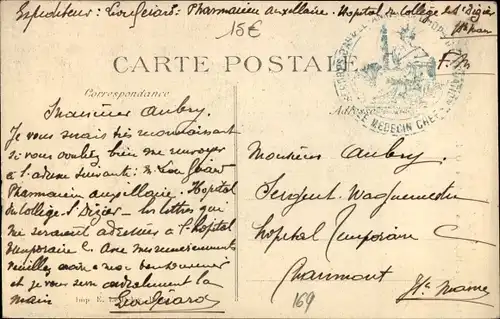 Expéditeur : Léon Girard : Pharmacien auxiliaire. Hopital du Collège St Dizier
Hte Marne
15€
F. M.
CARTE POSTALE
MÉDECIN CHEF
Correspondance
Monsieur Aubry.
Je vous serais très reconnaissant
si vous vouliez bien me renvoyer
à l'adresse suivante : M. Léon Girard
Pharmacien auxiliaire - Hopital
du Collège St Dizier - les lettres qui
me seraient adressées à l'hopital
temporaire C. Avec mes remerciements
veuillez croire
et je vous serre cordialement la
main Léon Girard
Monsieur Aubry.
Sergent Vaguemestre
hopital Temporaire C
Chaumont
Hte Marne
169
Imp. E.